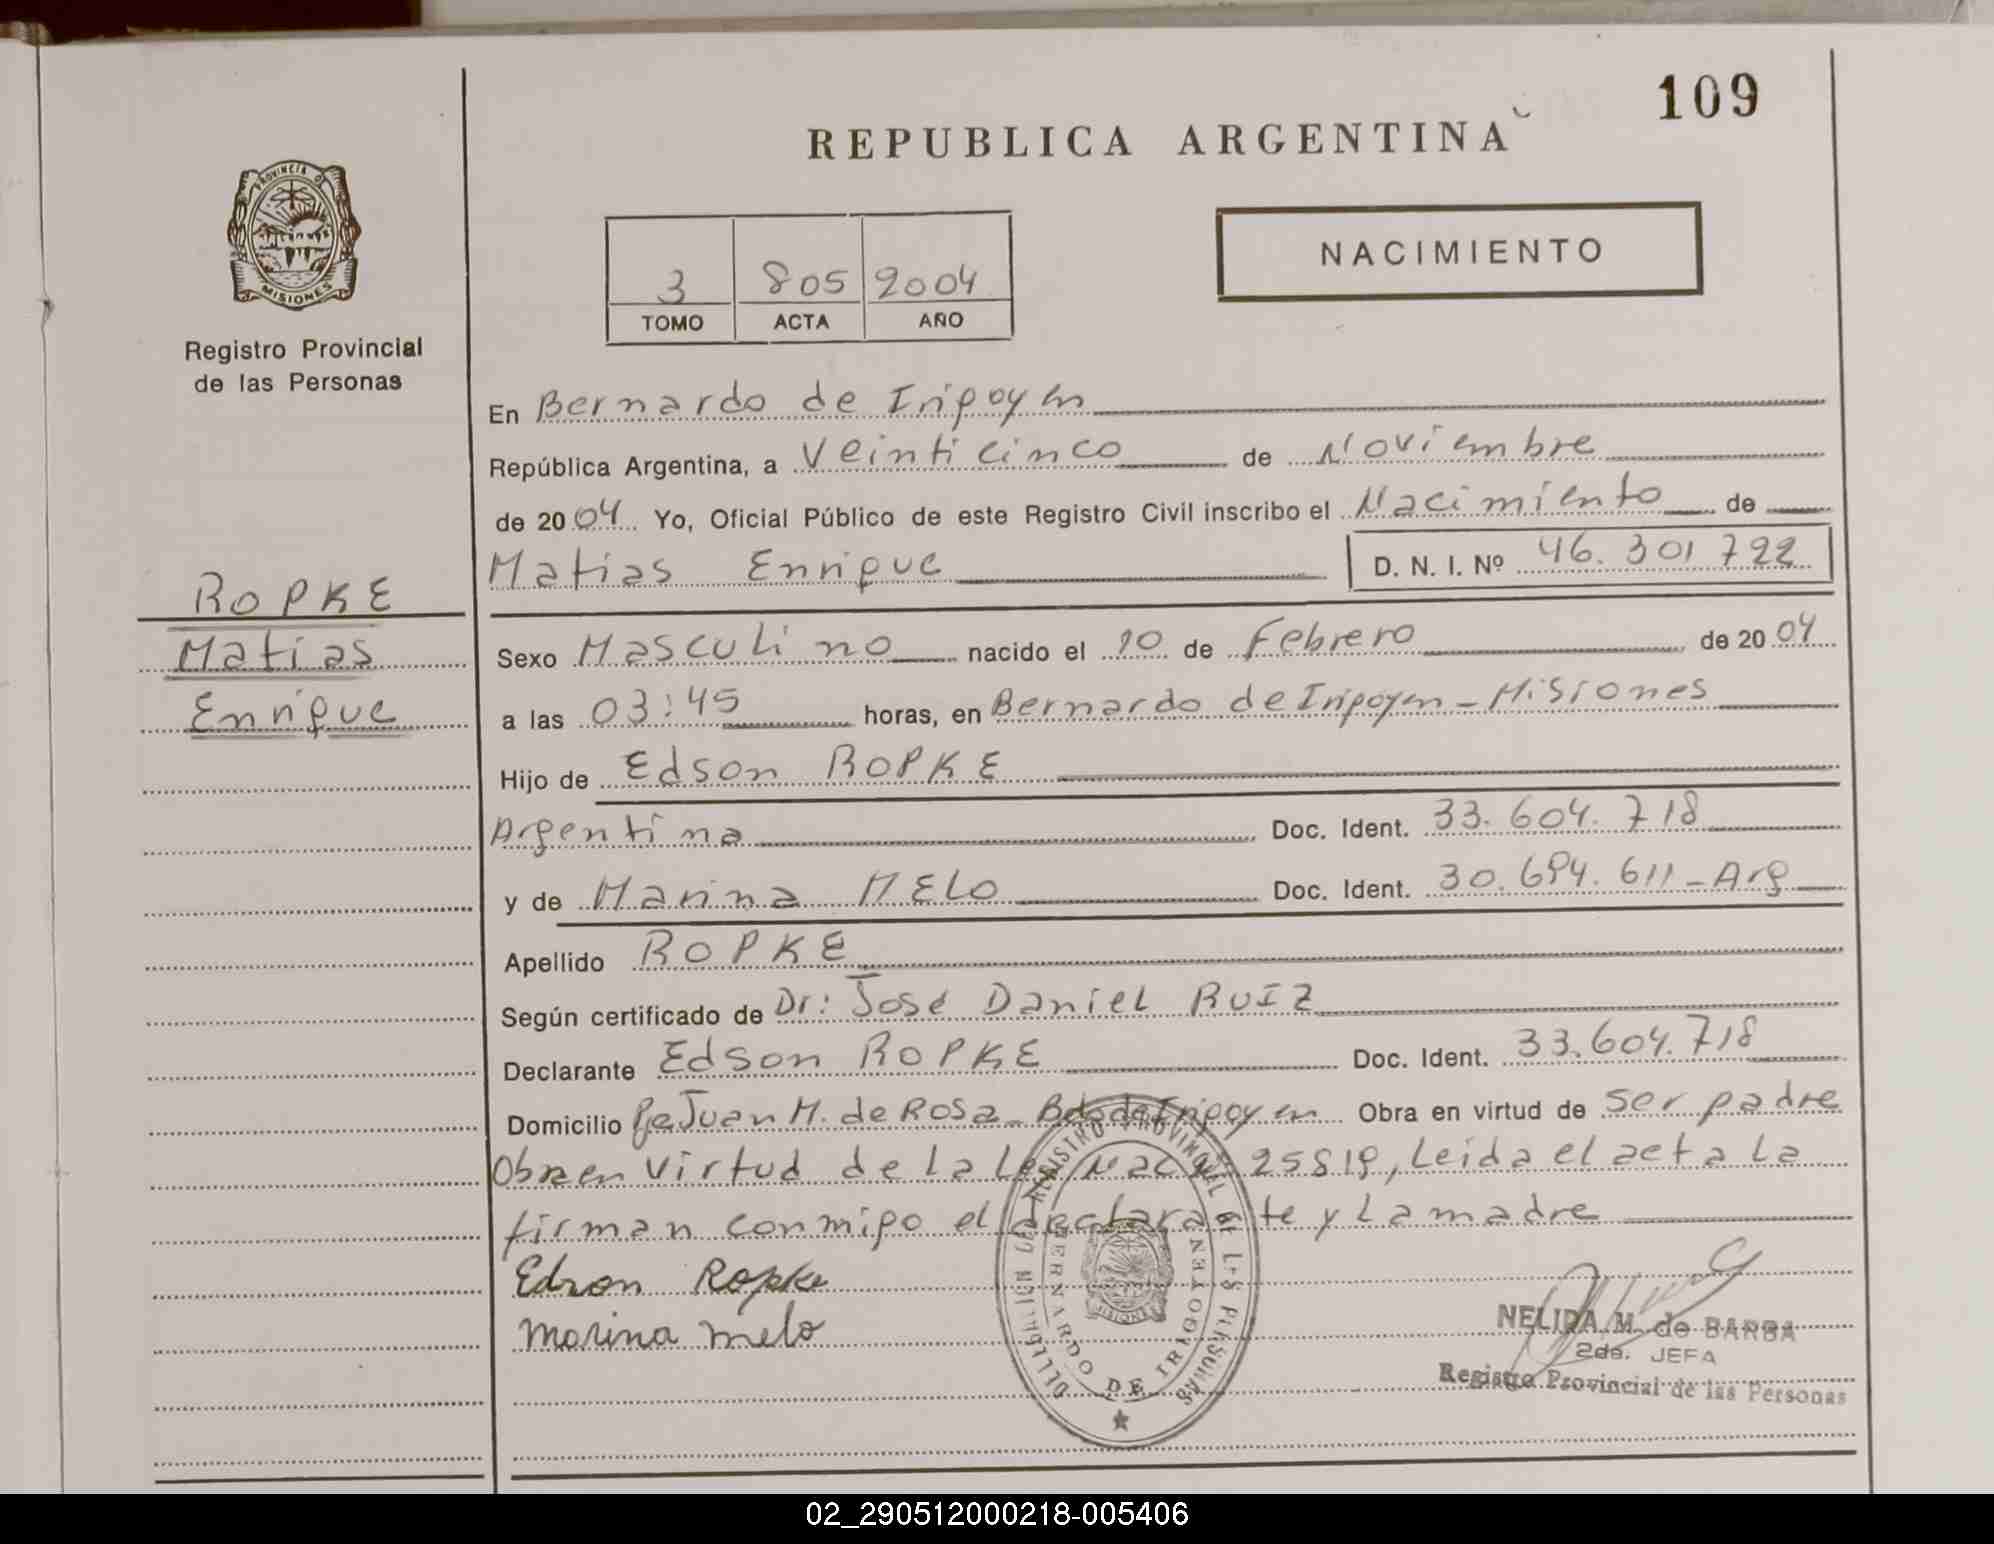 109
REPUBLICA ARGENTINA
PROVINCIA DE
MISIONES
Registro Provincial
de las Personas
3 805 2004
TOMO ACTA AÑO
NACIMIENTO
En Bernardo de Iripoyen
República Argentina, a Veinticinco de Noviembre
de 2004 Yo, Oficial Público de este Registro Civil inscribo el Nacimiento de
Matias Enrique D. N. I. Nº 46.301722
ROPKE
Matías
Enrique
Sexo Masculino nacido el 20 de Febrero de 2004
a las 03:45 horas, en Bernardo de Iripoyen - Misiones
Hijo de Edson ROPKE
Argentina Doc. Ident. 33.604.718
y de Marina MELO Doc. Ident. 30.694.611 - Arg
Apellido ROPKE
Según certificado de Dr: José Daniel RUIZ
Declarante Edson ROPKE Doc. Ident. 33.604.718
Domicilio Juan M. de Rosa - Bdo de Iripoyen Obra en virtud de ser padre
Obra en virtud de la Ley Nac. 25819, Leida el acta la
firman conmigo el declarante y La madre
Edson Ropke
Marina melo
REGISTRO PROVINCIAL DE LAS PERSONAS
BERNARDO DE IRIGOYEN
NELIDA M. de BARBA
2da. JEFA
Registro Provincial de las Personas
02_290512000218-005406